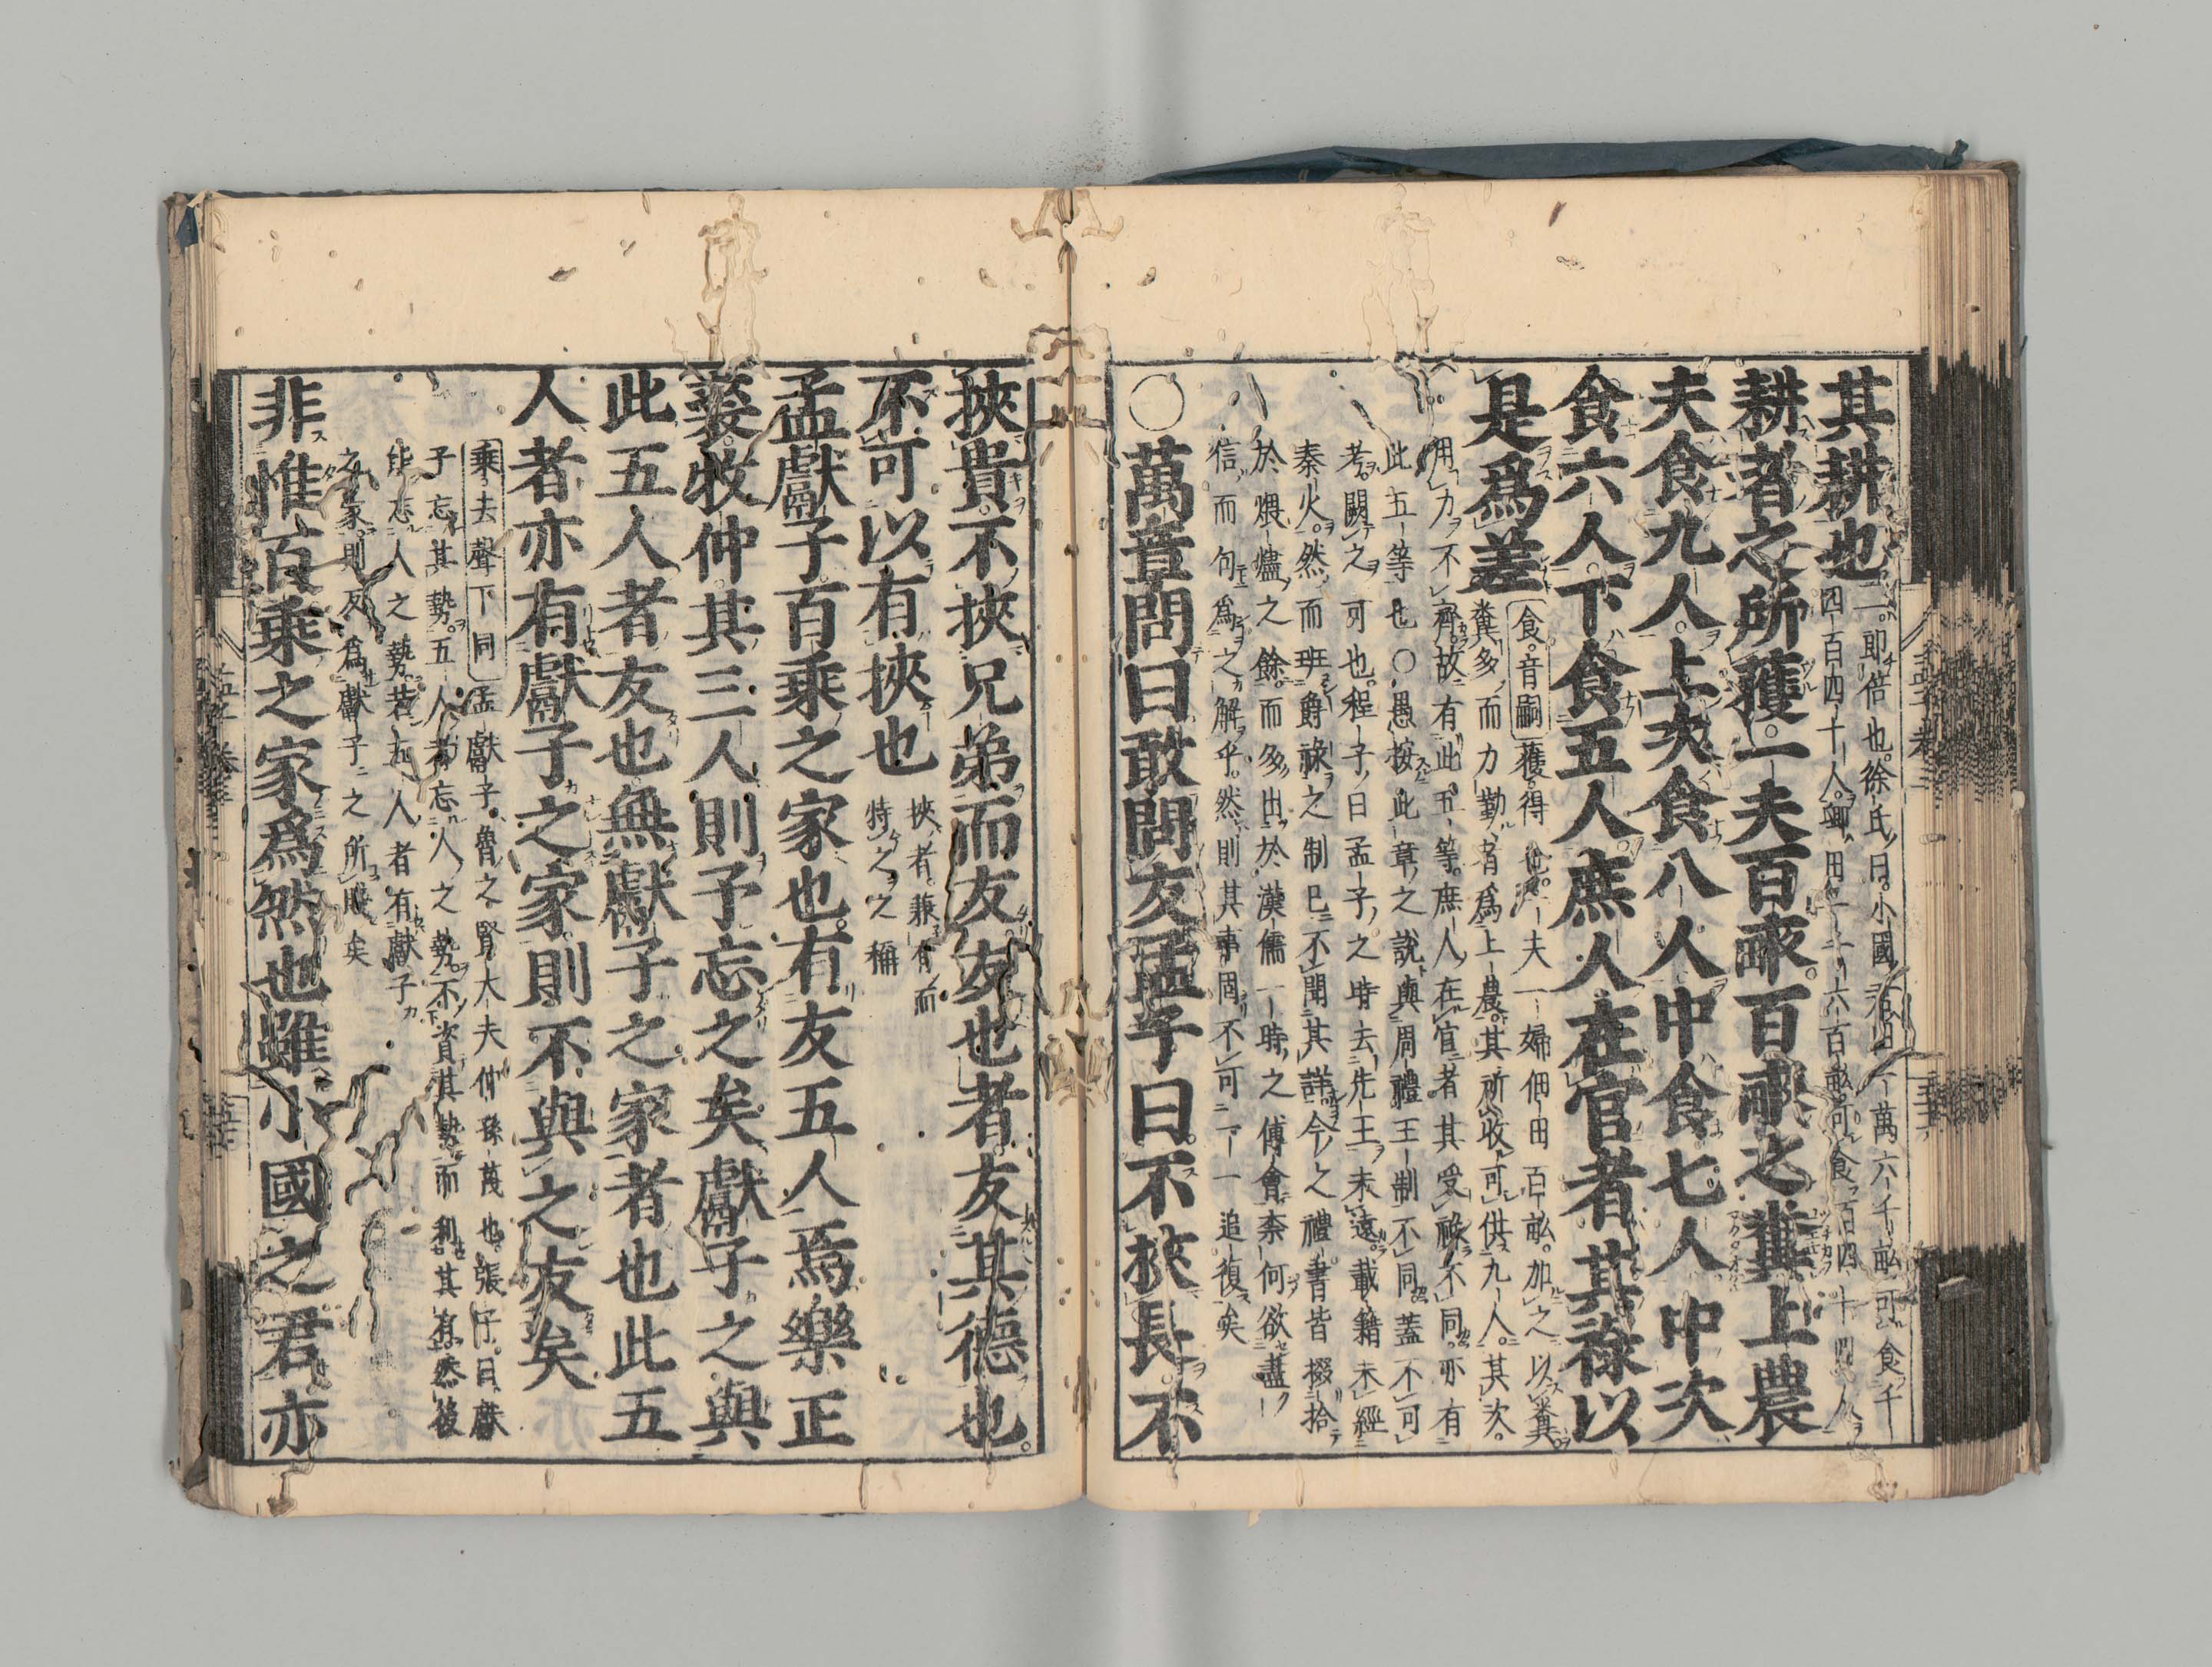 其耕也
二即倍也徐氏曰小國君田一萬六千畝可食千
四百四十人卿田一千六百畝可食百四十四人
耕者之所獲一夫百畝百畝之糞上農
夫食九人上次食八人中食七人中次
食六人下食五人庶人在官者其祿以
是爲差
食音嗣 獲得也一夫一婦佃田百畝加之以糞
糞多而力勤者爲上農其所收可供九人其次
用力不齊故有此五等庶人在官者其受祿不同亦有
此五等也○愚按此章之說與周禮王制不同蓋不可
考闕之可也程子曰孟子之時去先王未遠載籍未經
秦火然而班爵祿之制已不聞其詳今之禮書皆掇拾
於煨燼之餘而多出於漢儒一時之傅會柰何欲盡
信而句爲之解乎然則其事固不可一一追復矣
○萬章問曰敢問友孟子曰不挾長不
挾貴不挾兄弟而友友也者友其德也
不可以有挾也
挾者兼有而
恃之之稱
孟獻子百乘之家也有友五人焉樂正
裘牧仲其三人則予忘之矣獻子之與
此五人者友也無獻子之家者也此五
人者亦有獻子之家則不與之友矣
乘去聲下同 孟獻子魯之賢大夫仲孫蔑也張子曰獻
子忘其勢五人者忘人之勢不資其勢而利其有然後
能忘人之勢若五人者有獻子
之家則反爲獻子之所賤矣
非惟百乘之家爲然也雖小國之君亦